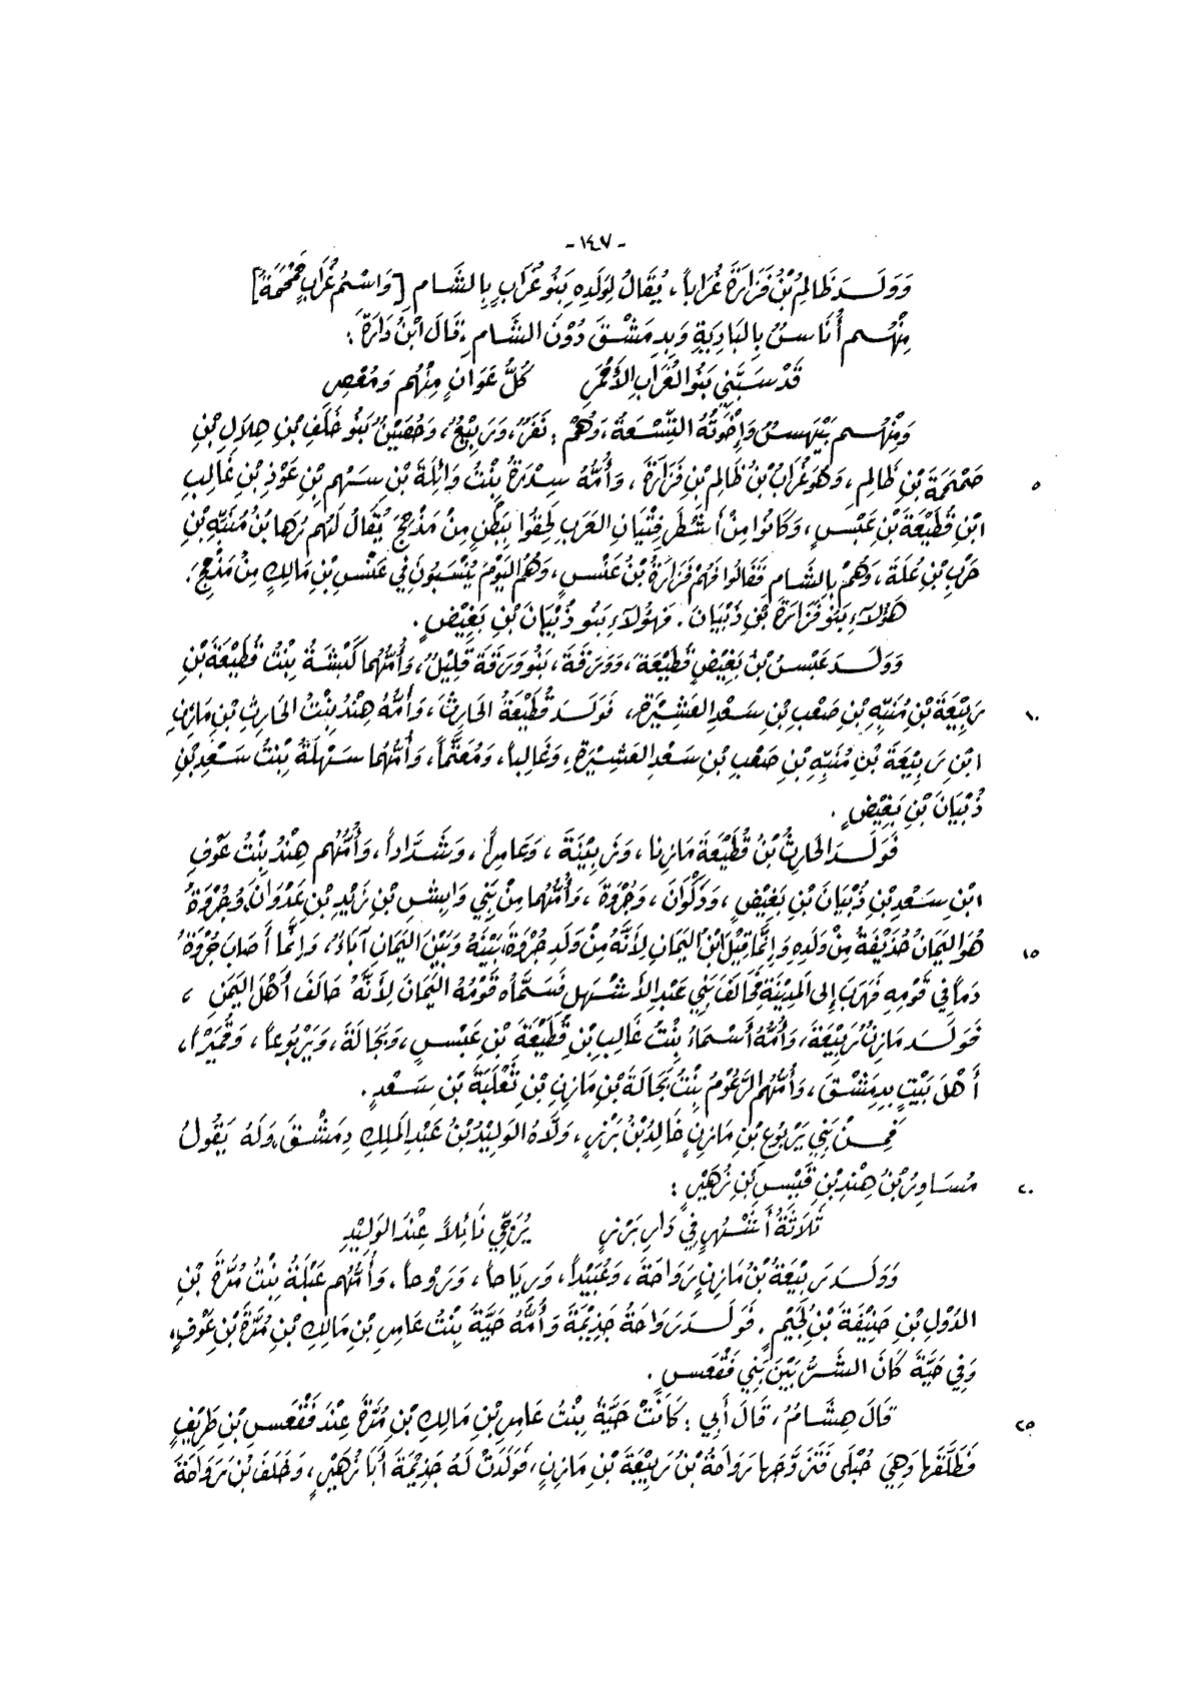 - ١٤٧ -
وَوَلَدَ ظَالِمُ بْنُ فَزَارَةَ غُرَاباً، يُقَالُ لِوَلَدِهِ بَنُو غُرَابٍ بِالشَّامِ [وَاسْمُ غُرَابٍ حَمْحَمَةُ]
مِنْهُم أُنَاسٌ بِالبَادِيَةِ وَبِدِمَشْقَ دُوْنَ الشَّامِ، قَالَ ابْنُ دَارَةَ :
قَدْ سَبَّنِي بَنُو الغُرَابِ الأَحْمَرِ كُلُّ عَوَانٍ مِنْهُم وَمُعْصِرِ
وَمِنْهُم بَيْهَسُ وَإِخْوَتُهُ التِّسْعَةُ، وَهُمْ : نَفَرٌ، وَرَبِيْعٌ، وَحُصَيْنٌ بَنُو خَلَفِ بْنِ هِلَالِ بْنِ
٥ حَمْحَمَةَ بْنِ ظَالِمٍ، وَهُوَ غُرَابُ بْنُ ظَالِمِ بْنِ فَزَارَةَ، وَأُمُّهُ سِدْرَةُ بِنْتُ وَائِلَةَ بْنِ سَهْمِ بْنِ عَوْذِ بْنِ غَالِبِ
ابْنِ قُطَيْعَةَ بْنِ عَبْسٍ، وَكَانُوا مِنْ أَشْطَرِ فِتْيَانِ العَرَبِ لَحِقُوا بِبَطْنٍ مِنْ مَذْحِجَ يُقَالُ لَهُم رُهَا بْنُ مُنَبِّهِ بْنِ
حَرْبِ بْنِ عُلَةَ، وَهُمْ بِالشَّامِ فَقَالُوا فَهُمْ فَزَارَةُ بْنُ عَنْسٍ، وَهُمُ اليَوْمَ يُنْسَبُونَ فِي عَنْسِ بْنِ مَالِكٍ مِنْ مَذْحِجَ.
هَؤُلَاءِ بَنُو فَزَارَةَ بْنِ ذُبْيَانَ. فَهَؤُلَاءِ بَنُو ذُبْيَانَ بْنِ بَغِيْضٍ.
وَوَلَدَ عَبْسُ بْنُ بَغِيْضٍ قُطَيْعَةَ، وَوَرَقَةَ، بَنُو وَرَقَةَ قَلِيْلٌ، وَأُمُّهُمَا كَبْشَةُ بِنْتُ قُطَيْعَةَ بْنِ
١٠ رَبِيْعَةَ بْنِ مُنَبِّهِ بْنِ صَعْبِ بْنِ سَعْدِ العَشِيْرَةِ، فَوَلَدَ قُطَيْعَةُ الحَارِثَ، وَأُمُّهُ هِنْدُ بِنْتُ الحَارِثِ بْنِ مَازِنِ
ابْنِ رَبِيْعَةَ بْنِ مُنَبِّهِ بْنِ صَعْبِ بْنِ سَعْدِ العَشِيْرَةِ، وَغَالِباً، وَمُعْتَمّاً، وَأُمُّهُمَا سَهْلَةُ بِنْتُ سَعْدِ بْنِ
ذُبْيَانَ بْنِ بَغِيْضٍ.
فَوَلَدَ الحَارِثُ بْنُ قُطَيْعَةَ مَازِنا، وَزَبِيْنَةَ، وَعَامِراً، وَشَدَّاداً، وَأُمُّهُم هِنْدُ بِنْتُ عَوْفِ
ابْنِ سَعْدِ بْنِ ذُبْيَانَ بْنِ بَغِيْضٍ، وَذَكْوَانَ، وَجُرْوَةَ، وَأُمُّهُمَا مِنْ بَنِي وَابِشِ بْنِ زَيْدِ بْنِ عَدْوَانَ، وَجُرْوَةُ
١٥ هُوَ اليَمَانُ حُذَيْفَةُ مِنْ وَلَدِهِ وَإِنَّمَا قِيْلَ ابْنُ اليَمَانِ لِأَنَّهُ مِنْ وَلَدِ جُرْوَةَ، بَيْنَهُ وَبَيْنَ اليَمَانِ آبَاءٌ، وَإِنَّمَا أَصَابَ جُرْوَةُ
دَماً فِي قَوْمِهِ فَهَرَبَ إِلَى المَدِيْنَةِ فَحَالَفَ بَنِي عَبْدِ الأَشْهَلِ فَسَمَّاهُ قَوْمُهُ اليَمَانَ لِأَنَّهُ حَالَفَ أَهْلَ اليَمَنِ،
فَوَلَدَ مَازِنُ رَبِيْعَةَ، وَأُمُّهُ أَسْمَاءُ بِنْتُ غَالِبِ بْنِ قُطَيْعَةَ بْنِ عَبْسٍ، وَبَجَالَةَ، وَيَرْبُوعاً، وَقُمَيْراً،
أَهْلَ بَيْتٍ بِدِمَشْقَ، وَأُمُّهُم الرَّعُوْمُ بِنْتُ بَجَالَةَ بْنِ مَازِنِ بْنِ ثَعْلَبَةَ بْنِ سَعْدٍ.
فَمِنْ بَنِي يَرْبُوعِ بْنِ مَازِنٍ خَالِدُ بْنُ بَرْزٍ، وَلَّاهُ الوَلِيْدُ بْنُ عَبْدِ المَلِكِ دِمَشْقَ، وَلَهُ يَقُولُ
٢٠ مُسَاوِرُ بْنُ هِنْدِ بْنِ قَيْسِ بْنِ زُهَيْرٍ :
ثَلَاثَةُ أَشْهُرٍ فِي دَارِ بَرْزٍ يُرَجِّي نَائِلاً عِنْدَ الوَلِيْدِ
وَوَلَدَ رَبِيْعَةُ بْنُ مَازِنٍ رَوَاحَةَ، وَعُبَيْداً، وَرِيَاحاً، وَرَوْحاً. وَأُمُّهُم عَبْلَةُ بِنْتُ مُرَّةَ بْنِ
الدُوْلِ بْنِ حَنِيْفَةَ بْنِ لُجَيْمٍ. فَوَلَدَ رَوَاحَةُ جَذِيْمَةَ وَأُمُّهُ حَيَّةُ بِنْتُ عَامِرِ بْنِ مَالِكِ بْنِ مُرَّةَ بْنِ عَوْفٍ،
وَفِي حَيَّةَ كَانَ الشَّرُّ بَيْنَ بَنِي فَقْعَسٍ.
٢٥ قَالَ هِشَامٌ، قَالَ أَبِي : كَانَتْ حَيَّةُ بِنْتُ عَامِرِ بْنِ مَالِكِ بْنِ مُرَّةَ عِنْدَ فَقْعَسِ بْنِ طَرِيْفٍ
فَطَلَّقَهَا وَهِيَ حُبْلَى فَتَزَوَّجَهَا رَوَاحَةُ بْنُ رَبِيْعَةَ بْنِ مَازِنٍ، فَوَلَدَتْ لَهُ جَذِيْمَةَ أَبَا زُهَيْرٍ، وَخَلَفَ بْنَ رَوَاحَةَ